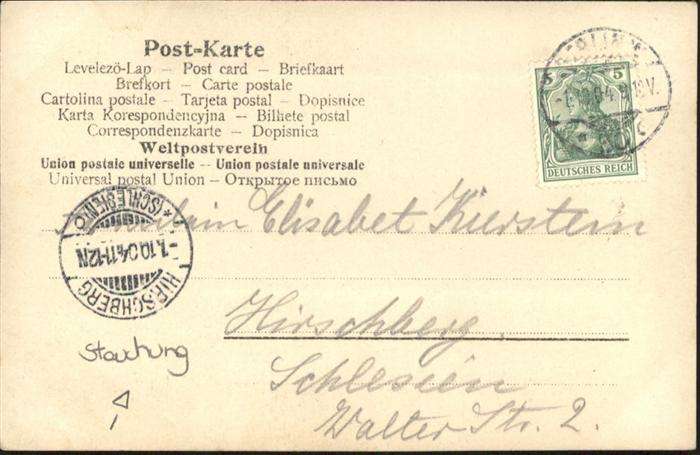 Post-Karte
Levelezö-Lap – Post card – Briefkaart
Brefkort – Carte postale
Cartolina postale – Tarjeta postal – Dopisnice
Karta Korespondencyjna – Bilhete postal
Correspondenzkarte – Dopisnica
Weltpostverein
Union postale universelle – Union postale universale
Universal postal Union – Открытое письмо
5 5
DEUTSCHES REICH
HIRSCHBERG
(SCHLESIEN)
-1.10.04.11-12N
Fräulein Elisabet Kierstein
Hirschberg
Schlesien
Walter Str. 2.
Stauchung